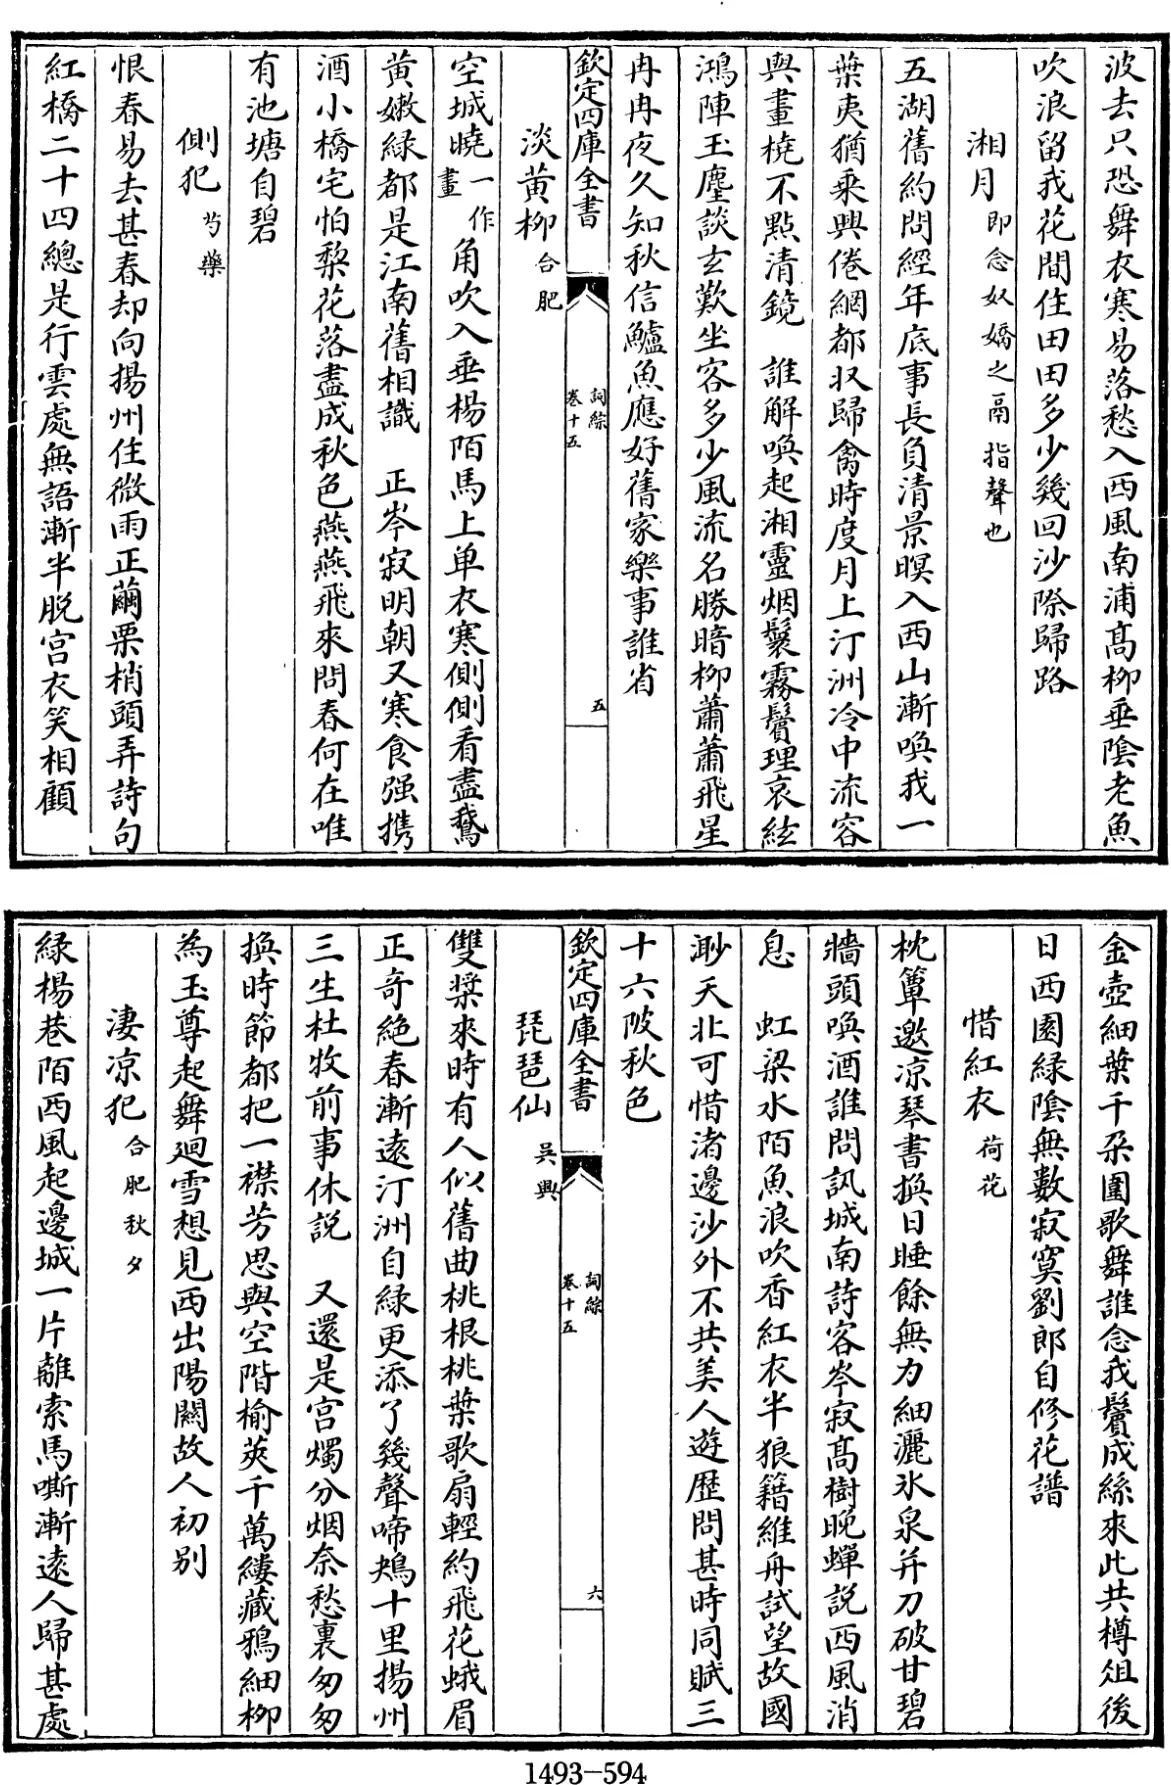 波去只恐舞衣寒易落愁入西風南浦髙柳垂陰老魚
吹浪留我花間住田田多少幾回沙際歸路
湘月即念奴嬌之鬲指聲也
五湖舊約問經年底事長負清景暝入西山漸喚我一
葉夷猶乗興倦網都収歸禽時度月上汀洲冷中流容
與畫橈不點清鏡　誰解喚起湘靈烟鬟霧鬢理哀絃
鴻陣玉麈談玄歎坐客多少風流名勝暗柳蕭蕭飛星
冉冉夜久知秋信鱸魚應好舊家樂事誰省
欽定四庫全書　詞綜卷十五　五
淡黄柳合肥
空城曉一作畫角吹入垂楊陌馬上单衣寒側側看盡鵞
黄嫩緑都是江南舊相識　正岑寂明朝又寒食强携
酒小橋宅怕棃花落盡成秋色燕燕飛來問春何在唯
有池塘自碧
側犯芍藥
恨春易去甚春却向揚州住微雨正繭栗梢頭弄詩句
紅橋二十四總是行雲處無語漸半脱宫衣笑相顧
金壺細葉千朶圍歌舞誰念我鬢成絲來此共樽俎後
日西園緑隂無數寂寞劉郎自修花譜
惜紅衣荷花
枕簟邀凉琴書換日睡餘無力細灑氷泉并刀破甘碧
牆頭喚酒誰問訊城南詩客岑寂髙樹晚蟬説西風消
息　虹梁水陌魚浪吹香紅衣半狼籍維舟試望故國
渺天北可惜渚邊沙外不共美人遊歴問甚時同賦三
十六陂秋色
欽定四庫全書　詞綜卷十五　六
琵琶仙吳興
雙槳來時有人似舊曲桃根桃葉歌扇輕約飛花蛾眉
正奇絶春漸逺汀洲自緑更添了幾聲啼鴂十里揚州
三生杜牧前事休説　又還是宫燭分烟奈愁裏匆匆
換時節都把一襟芳思與空階榆莢千萬縷藏鴉細柳
為玉尊起舞廻雪想見西出陽關故人初别
淒凉犯合肥秋夕
緑楊巷陌西風起邊城一片離索馬嘶漸逺人歸甚處
1493—594